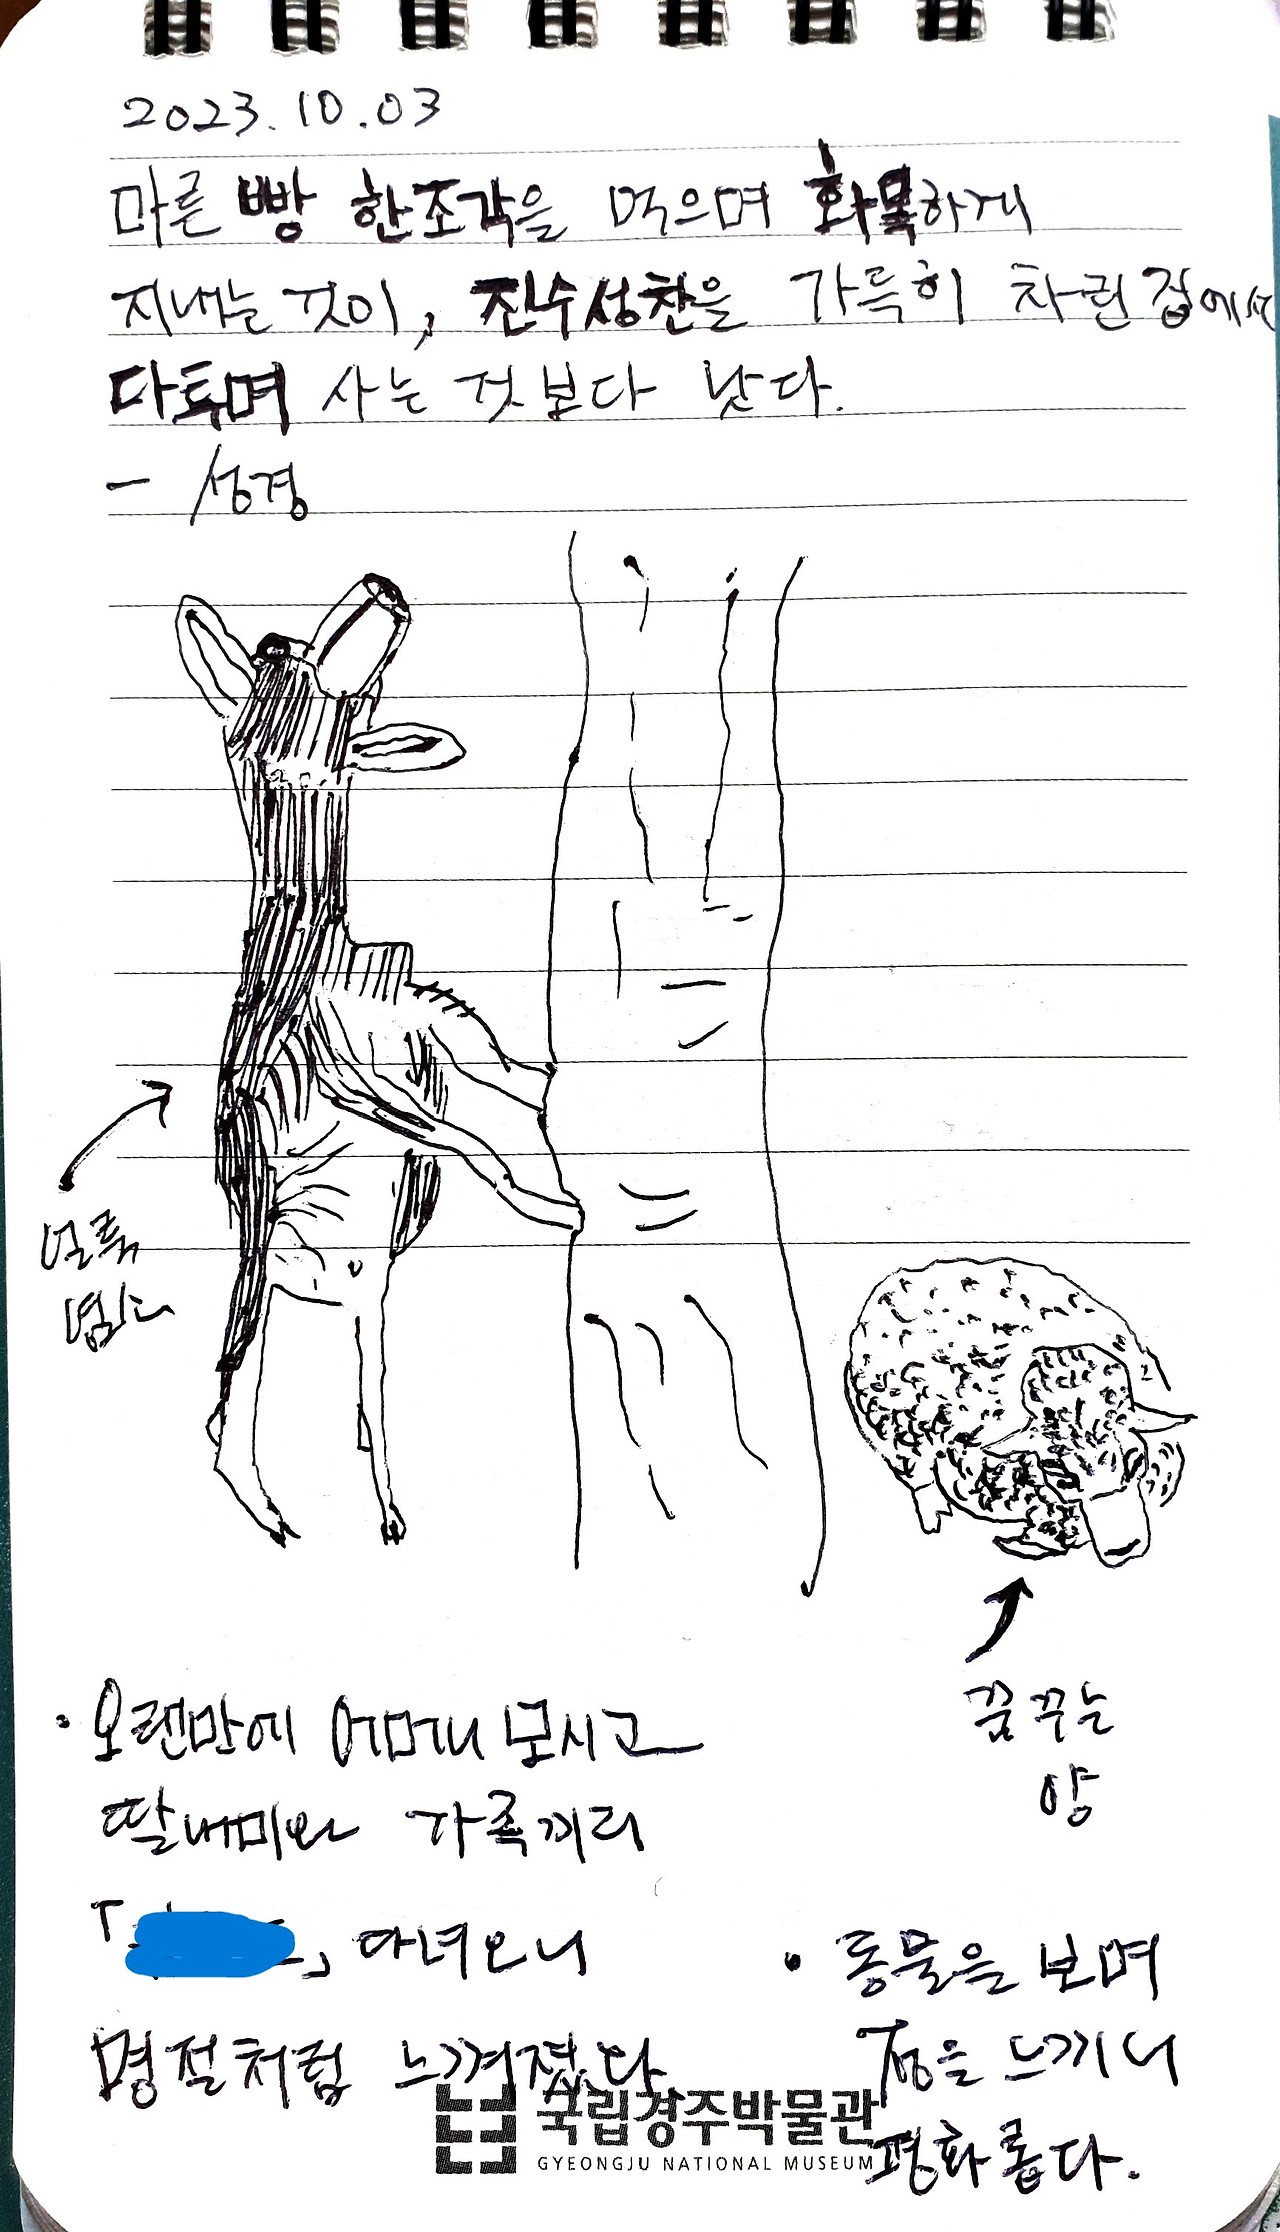 2023.10.03
마른 빵 한조각을 먹으며 화목하게
지내는 것이, 진수성찬을 가득히 차린 집에서
다투며 사는 것보다 낫다.
- 성경
얼룩
염소
꿈꾸는
양
· 오랜만에 어머니 모시고
딸내미와 가족끼리
「 」 다녀오니
명절처럼 느껴졌다
· 동물을 보며
정을 느끼니
평화롭다.
국립경주박물관
GYEONGJU NATIONAL MUSEUM